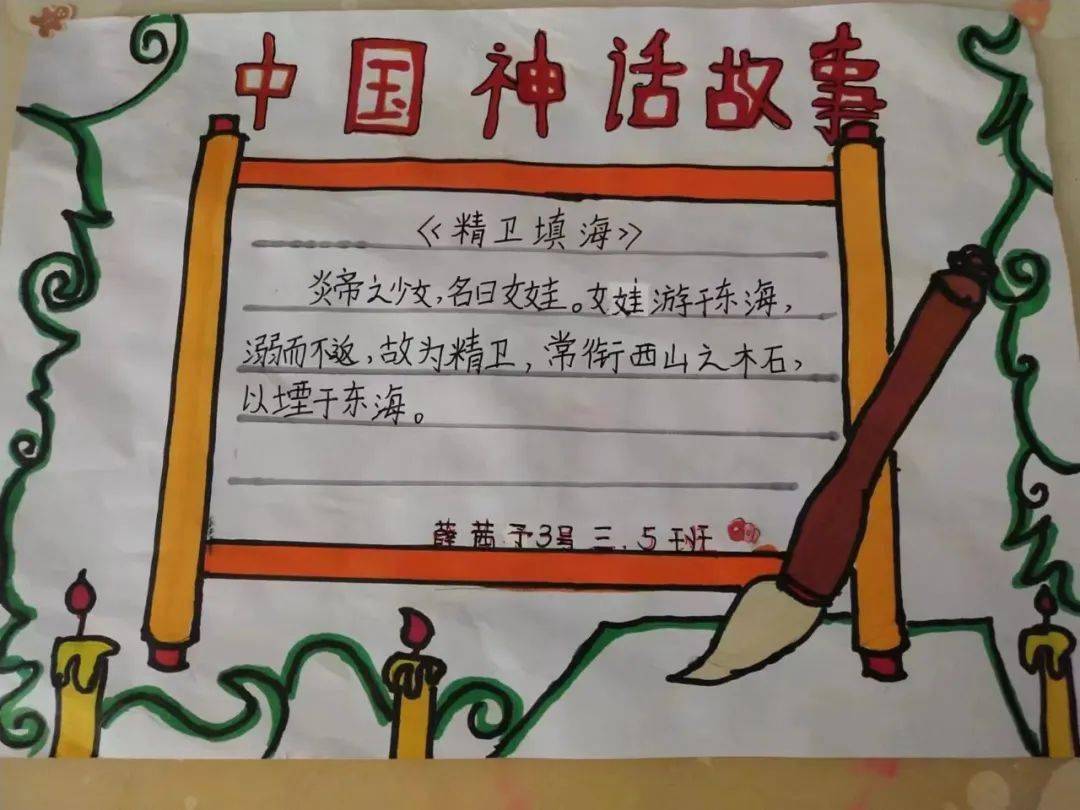 中国神话故事
《精卫填海》
炎帝之少女,名曰女娃。女娃游于东海,
溺而不返,故为精卫,常衔西山之木石,
以堙于东海。
薛茜予3号三.5班